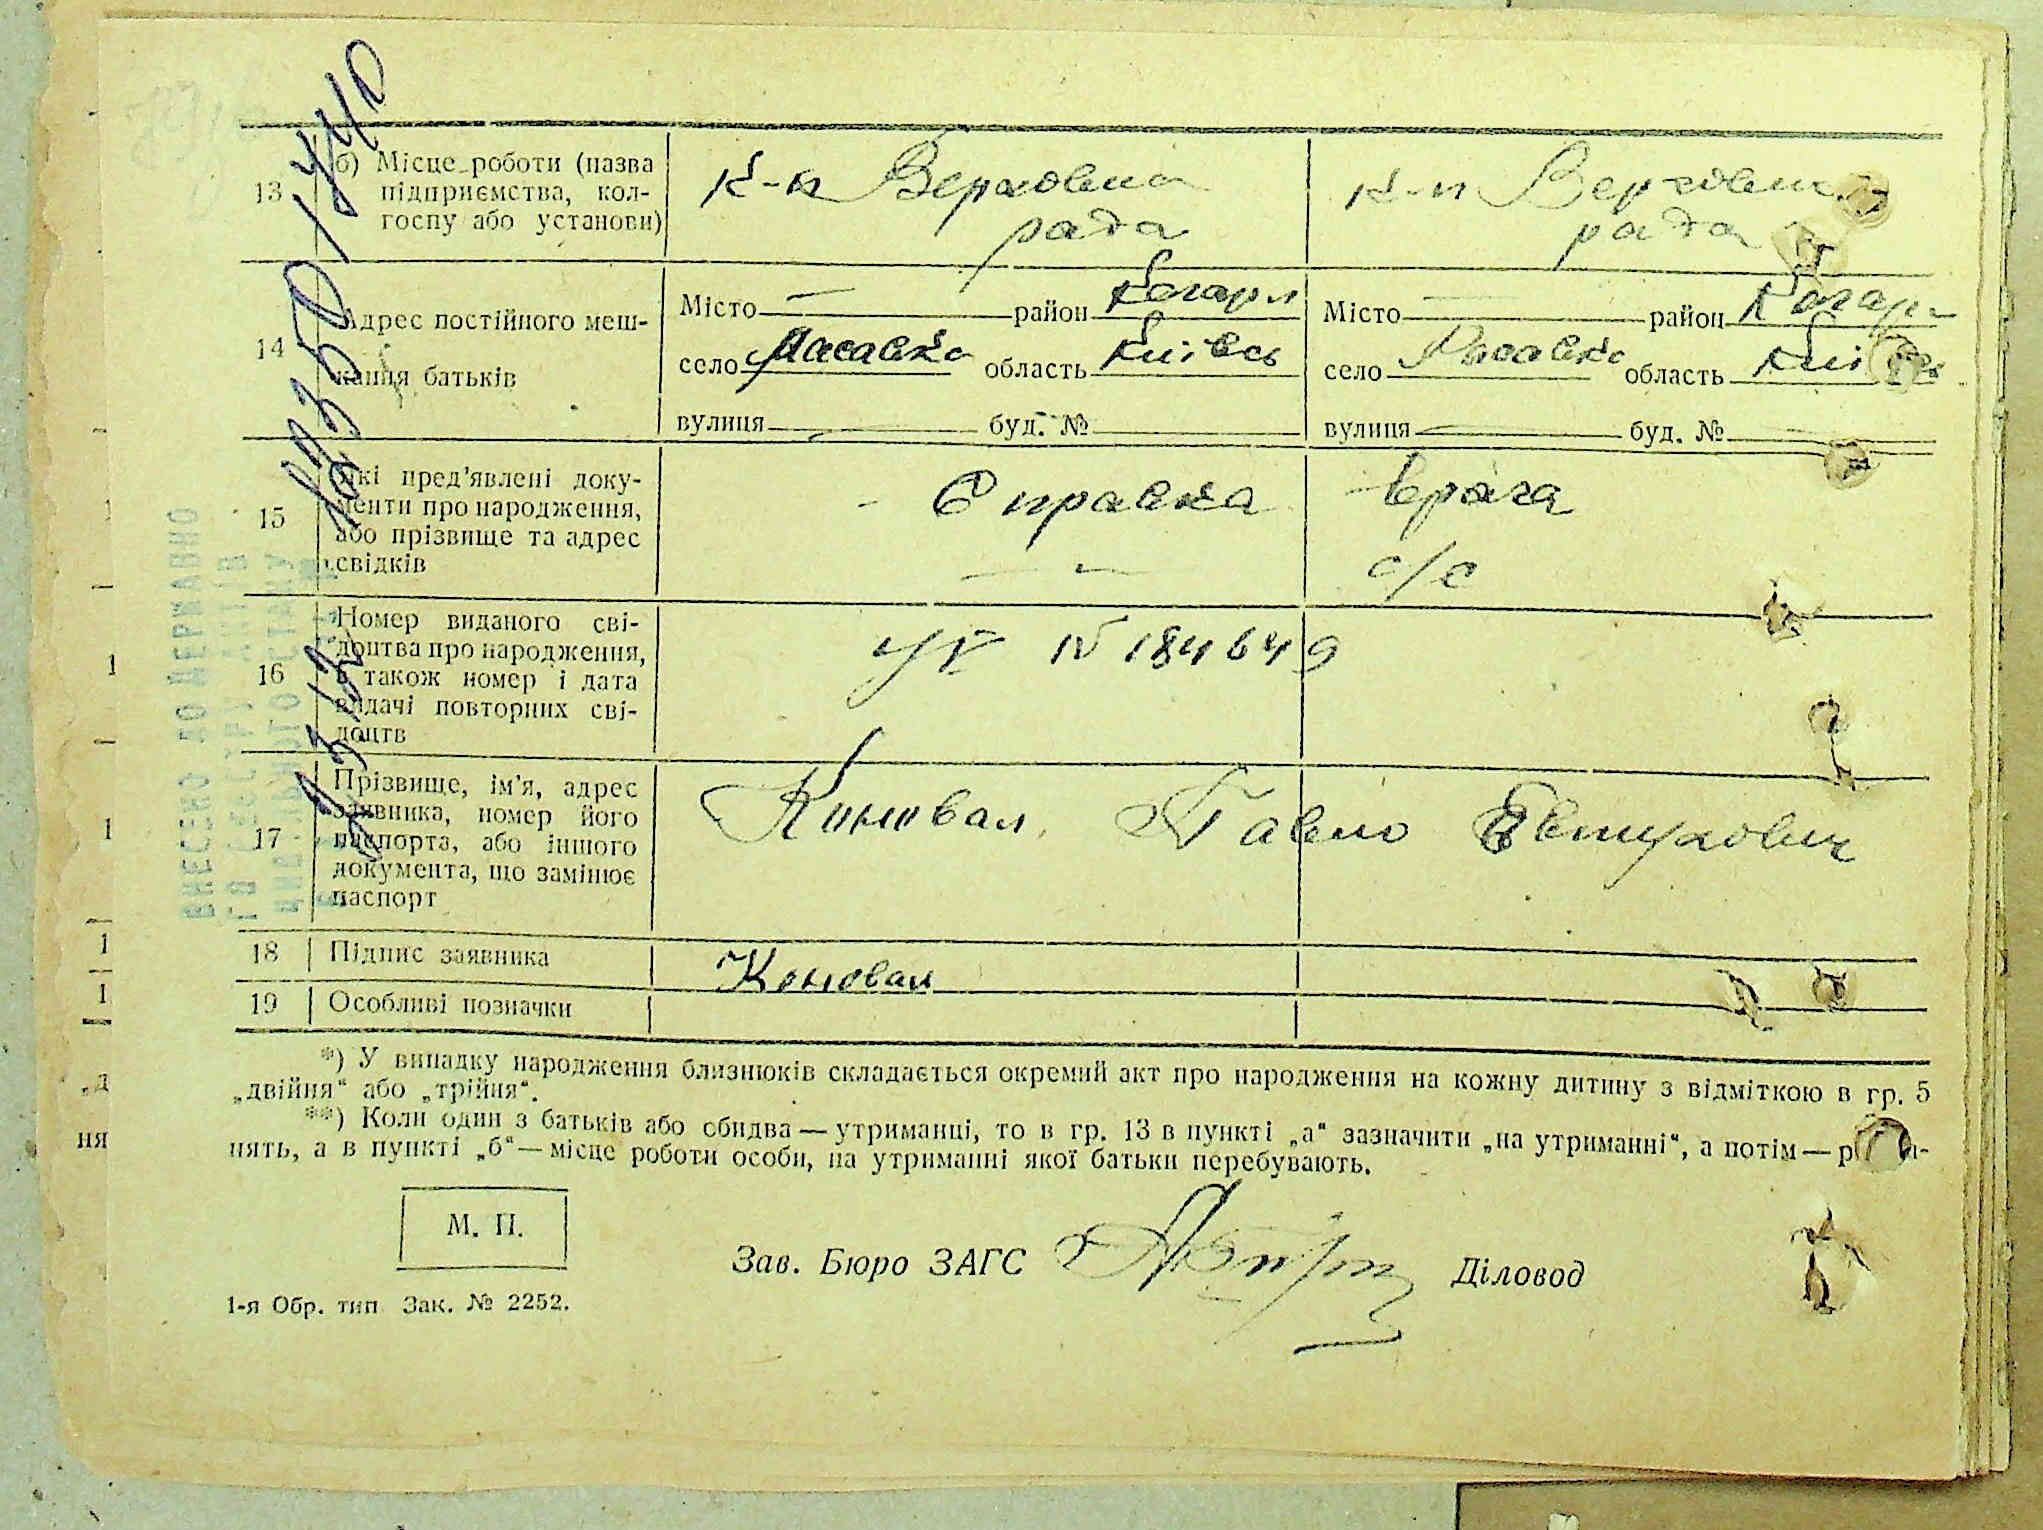 13 б) Місце роботи (назва підприємства, кол-
госпу або установи)
к-п Верховна рада
к-п Верховна рада
14 Адрес постійного меш-
кання батьків
Місто — район Кагарл
село Расавка область Київсь
вулиця — буд. №
Місто — район Кагарл
село Расавка область Київсь
вулиця — буд. №
15 Які пред'явлені доку-
менти про народження,
або прізвище та адрес
свідків
- Справка врача
с/с
16 Номер виданого сві-
доцтва про народження,
а також номер і дата
видачі повторних сві-
доцтв
№ 184649
17 Прізвище, ім'я, адрес
заявника, номер його
паспорта, або іншого
документа, що замінює
паспорт
Коновал Павло Євтухович
18 Підпис заявника
Коновал
19 Особливі позначки
*) У випадку народження близнюків складається окремий акт про народження на кожну дитину з відміткою в гр. 5
„двійня“ або „трійня“.
**) Коли один з батьків або обидва — утриманці, то в гр. 13 в пункті „а“ зазначити „на утриманні“, а потім —
нять, а в пункті „б“ — місце роботи особи, на утриманні якої батьки перебувають.
М. П.
Зав. Бюро ЗАГС
Діловод
1-я Обр. тип Зак. № 2252.